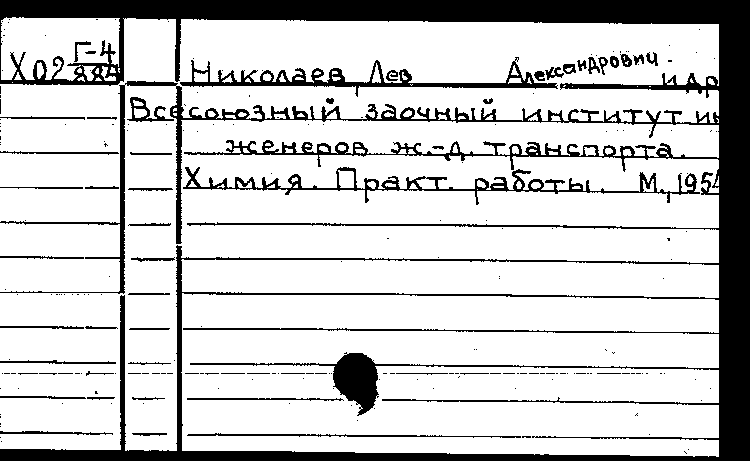 Х02 Г-4
884 Николаев, Лев Александрович и др
Всесоюзный заочный институт ин
женеров ж.-д. транспорта.
Химия. Практ. работы. М., 1954